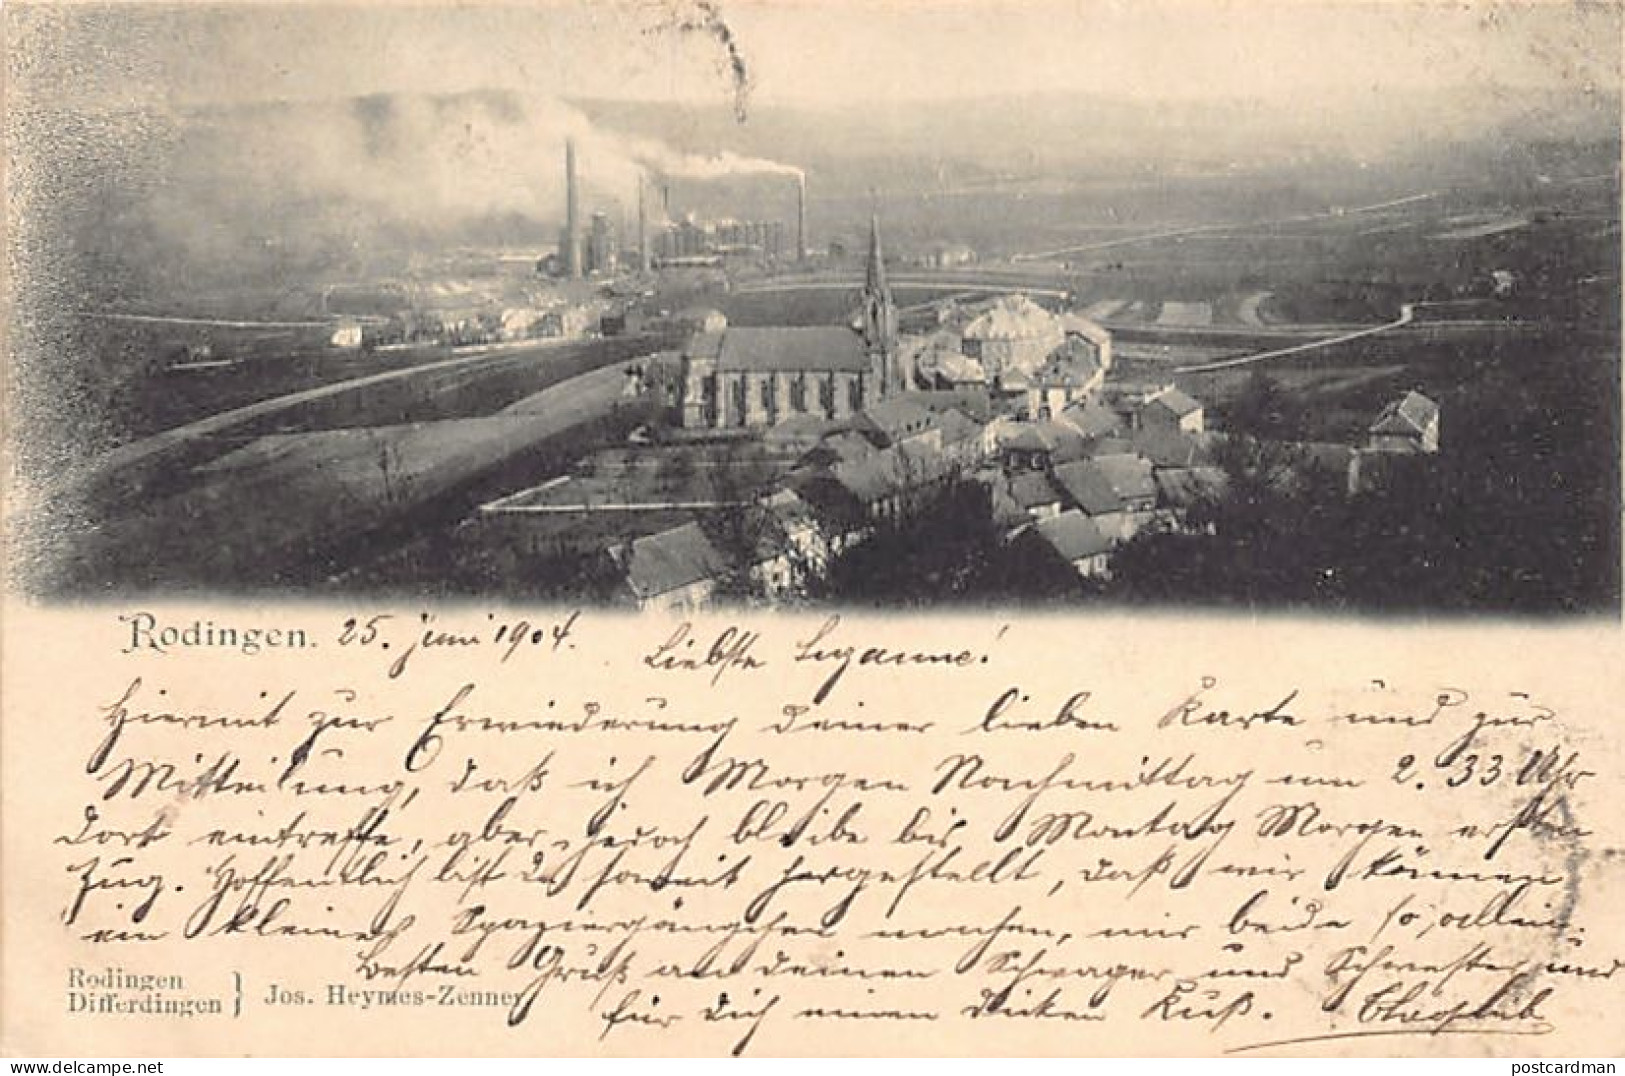 Rodingen. 25. Juni 1904.
Liebste Suzanne!
Hiermit zur Erwiederung deiner lieben Karte und zur
Mitteilung, daß ich Morgen Nachmittag um 2.33 Uhr
dort eintreffe, aber jedoch bleibe bis Montag Morgen ersten
Zug. Hoffentlich bist du soweit hergestellt, daß wir können
ein kleines Spaziergängchen machen, wir beide so allein.
Besten Gruß an deinen Schwager und Schwester und
für dich einen dicken Kuß.
Rodingen
Differdingen } Jos. Heymes-Zenner
delcampe.net
postcardman